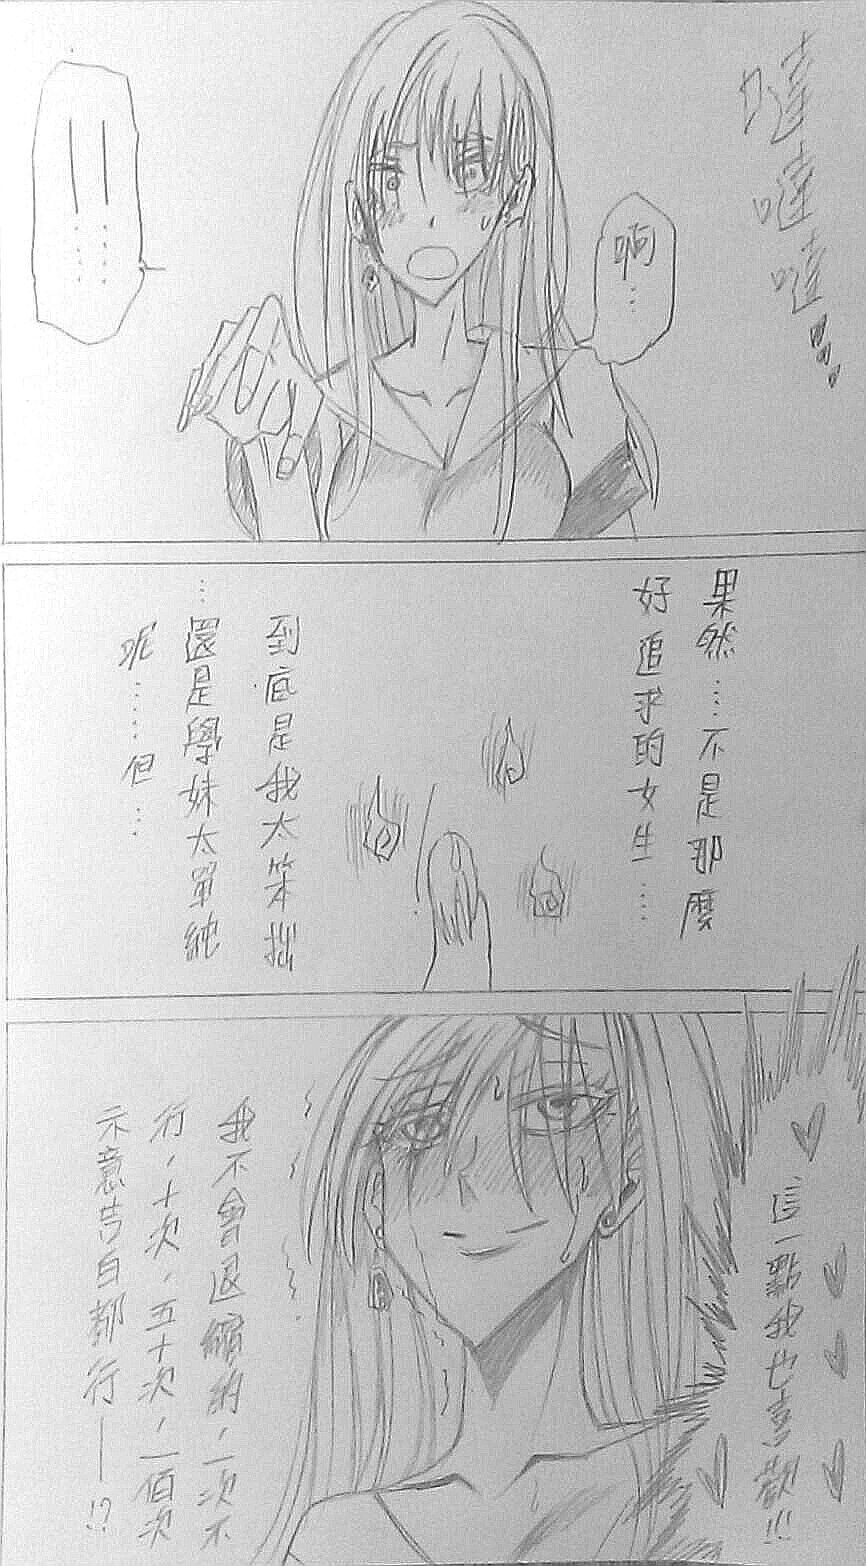 噠噠噠
啊……
——……
果然……不是那麼
好追求的女生……
到底是我太笨拙
…還是學妹太單純
呢……但…
這一點我也喜歡!!!
我不會退縮的，一次不
行，十次，五十次，一佰次
示意告白都行——!?